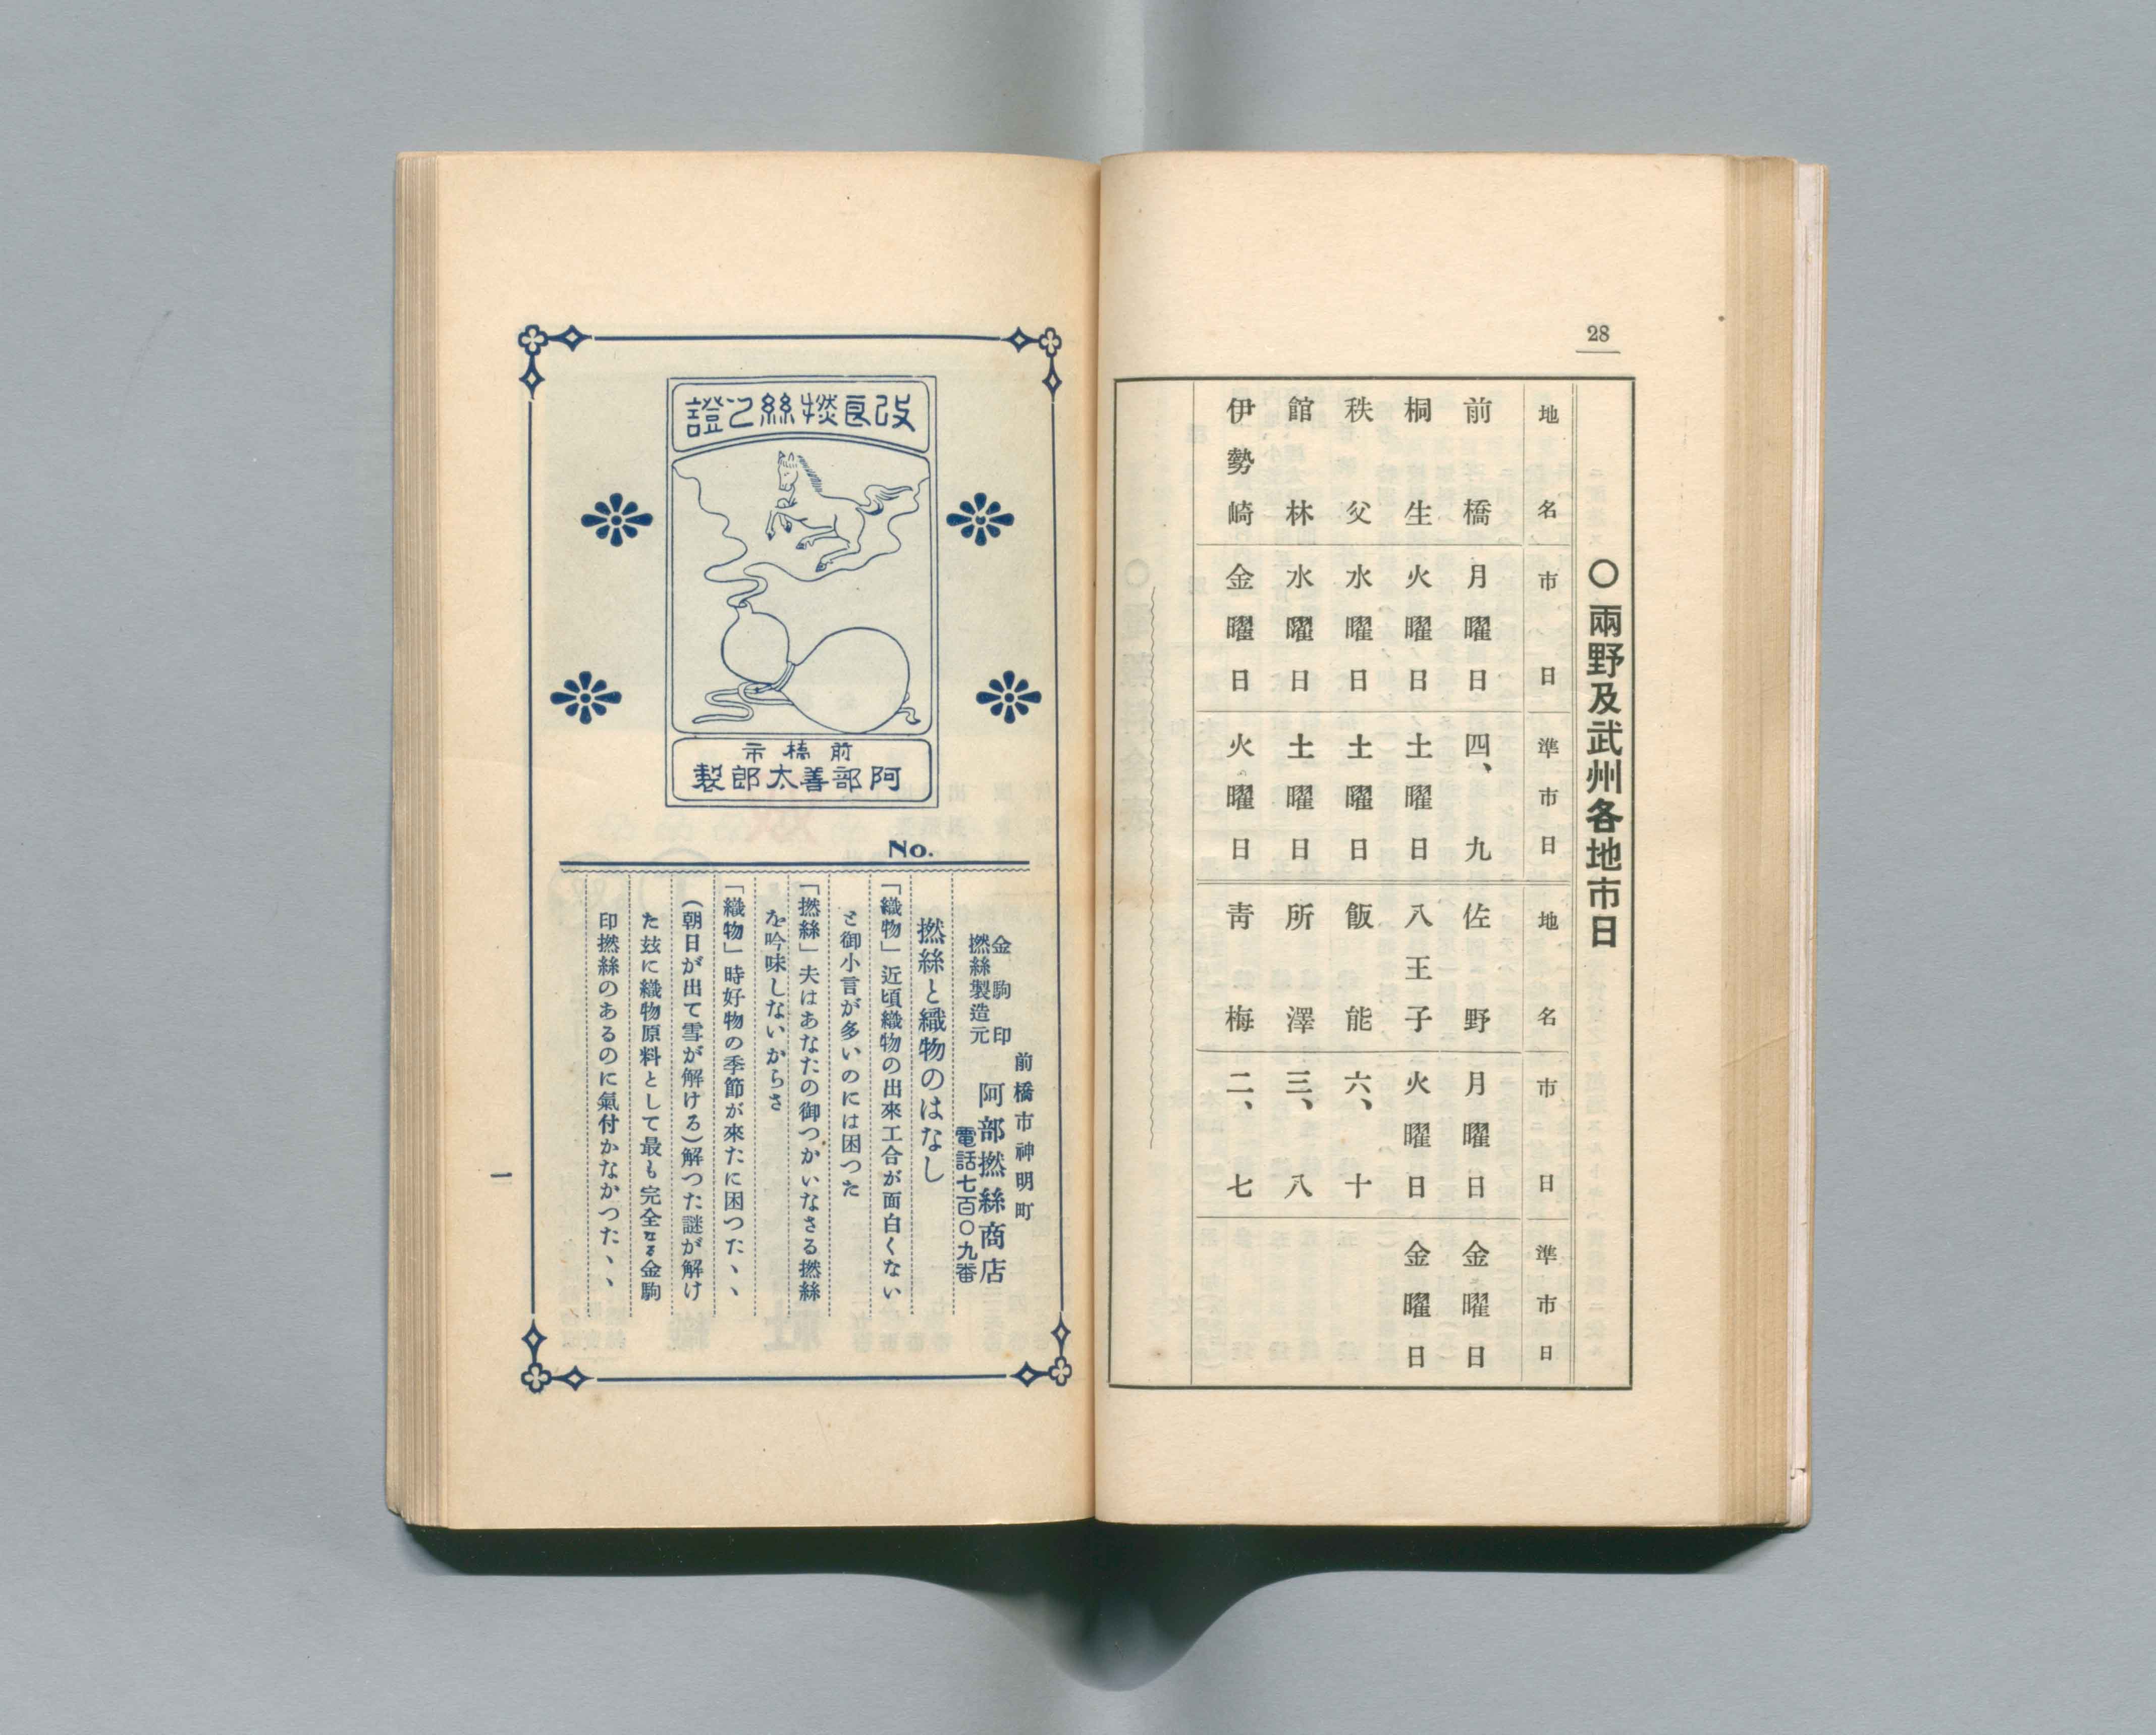 28
〇兩野及武州各地市日
地名 市日 準市日 地名 市日 準市日
前橋 月曜日 四、九 佐野 月曜日 金曜日
桐生 火曜日 土曜日 八王子 火曜日 金曜日
秩父 水曜日 土曜日 飯能 六、十
館林 水曜日 土曜日 所澤 三、八
伊勢崎 金曜日 火曜日 靑梅 二、七
改良撚絲之證
前橋市
阿部善太郎製
No.
前橋市神明町
金駒印
撚絲製造元
阿部撚絲商店
電話七百〇九番
撚絲と織物のはなし
「織物」近頃織物の出來工合が面白くない
と御小言が多いのには困つた
「撚絲」夫はあなたの御つかいなさる撚絲
を吟味しないからさ
「織物」時好物の季節が來たに困つた、、
(朝日が出て雪が解ける)解つた謎が解け
た玆に織物原料として最も完全なる金駒
印撚絲のあるのに氣付かなかつた、、
一